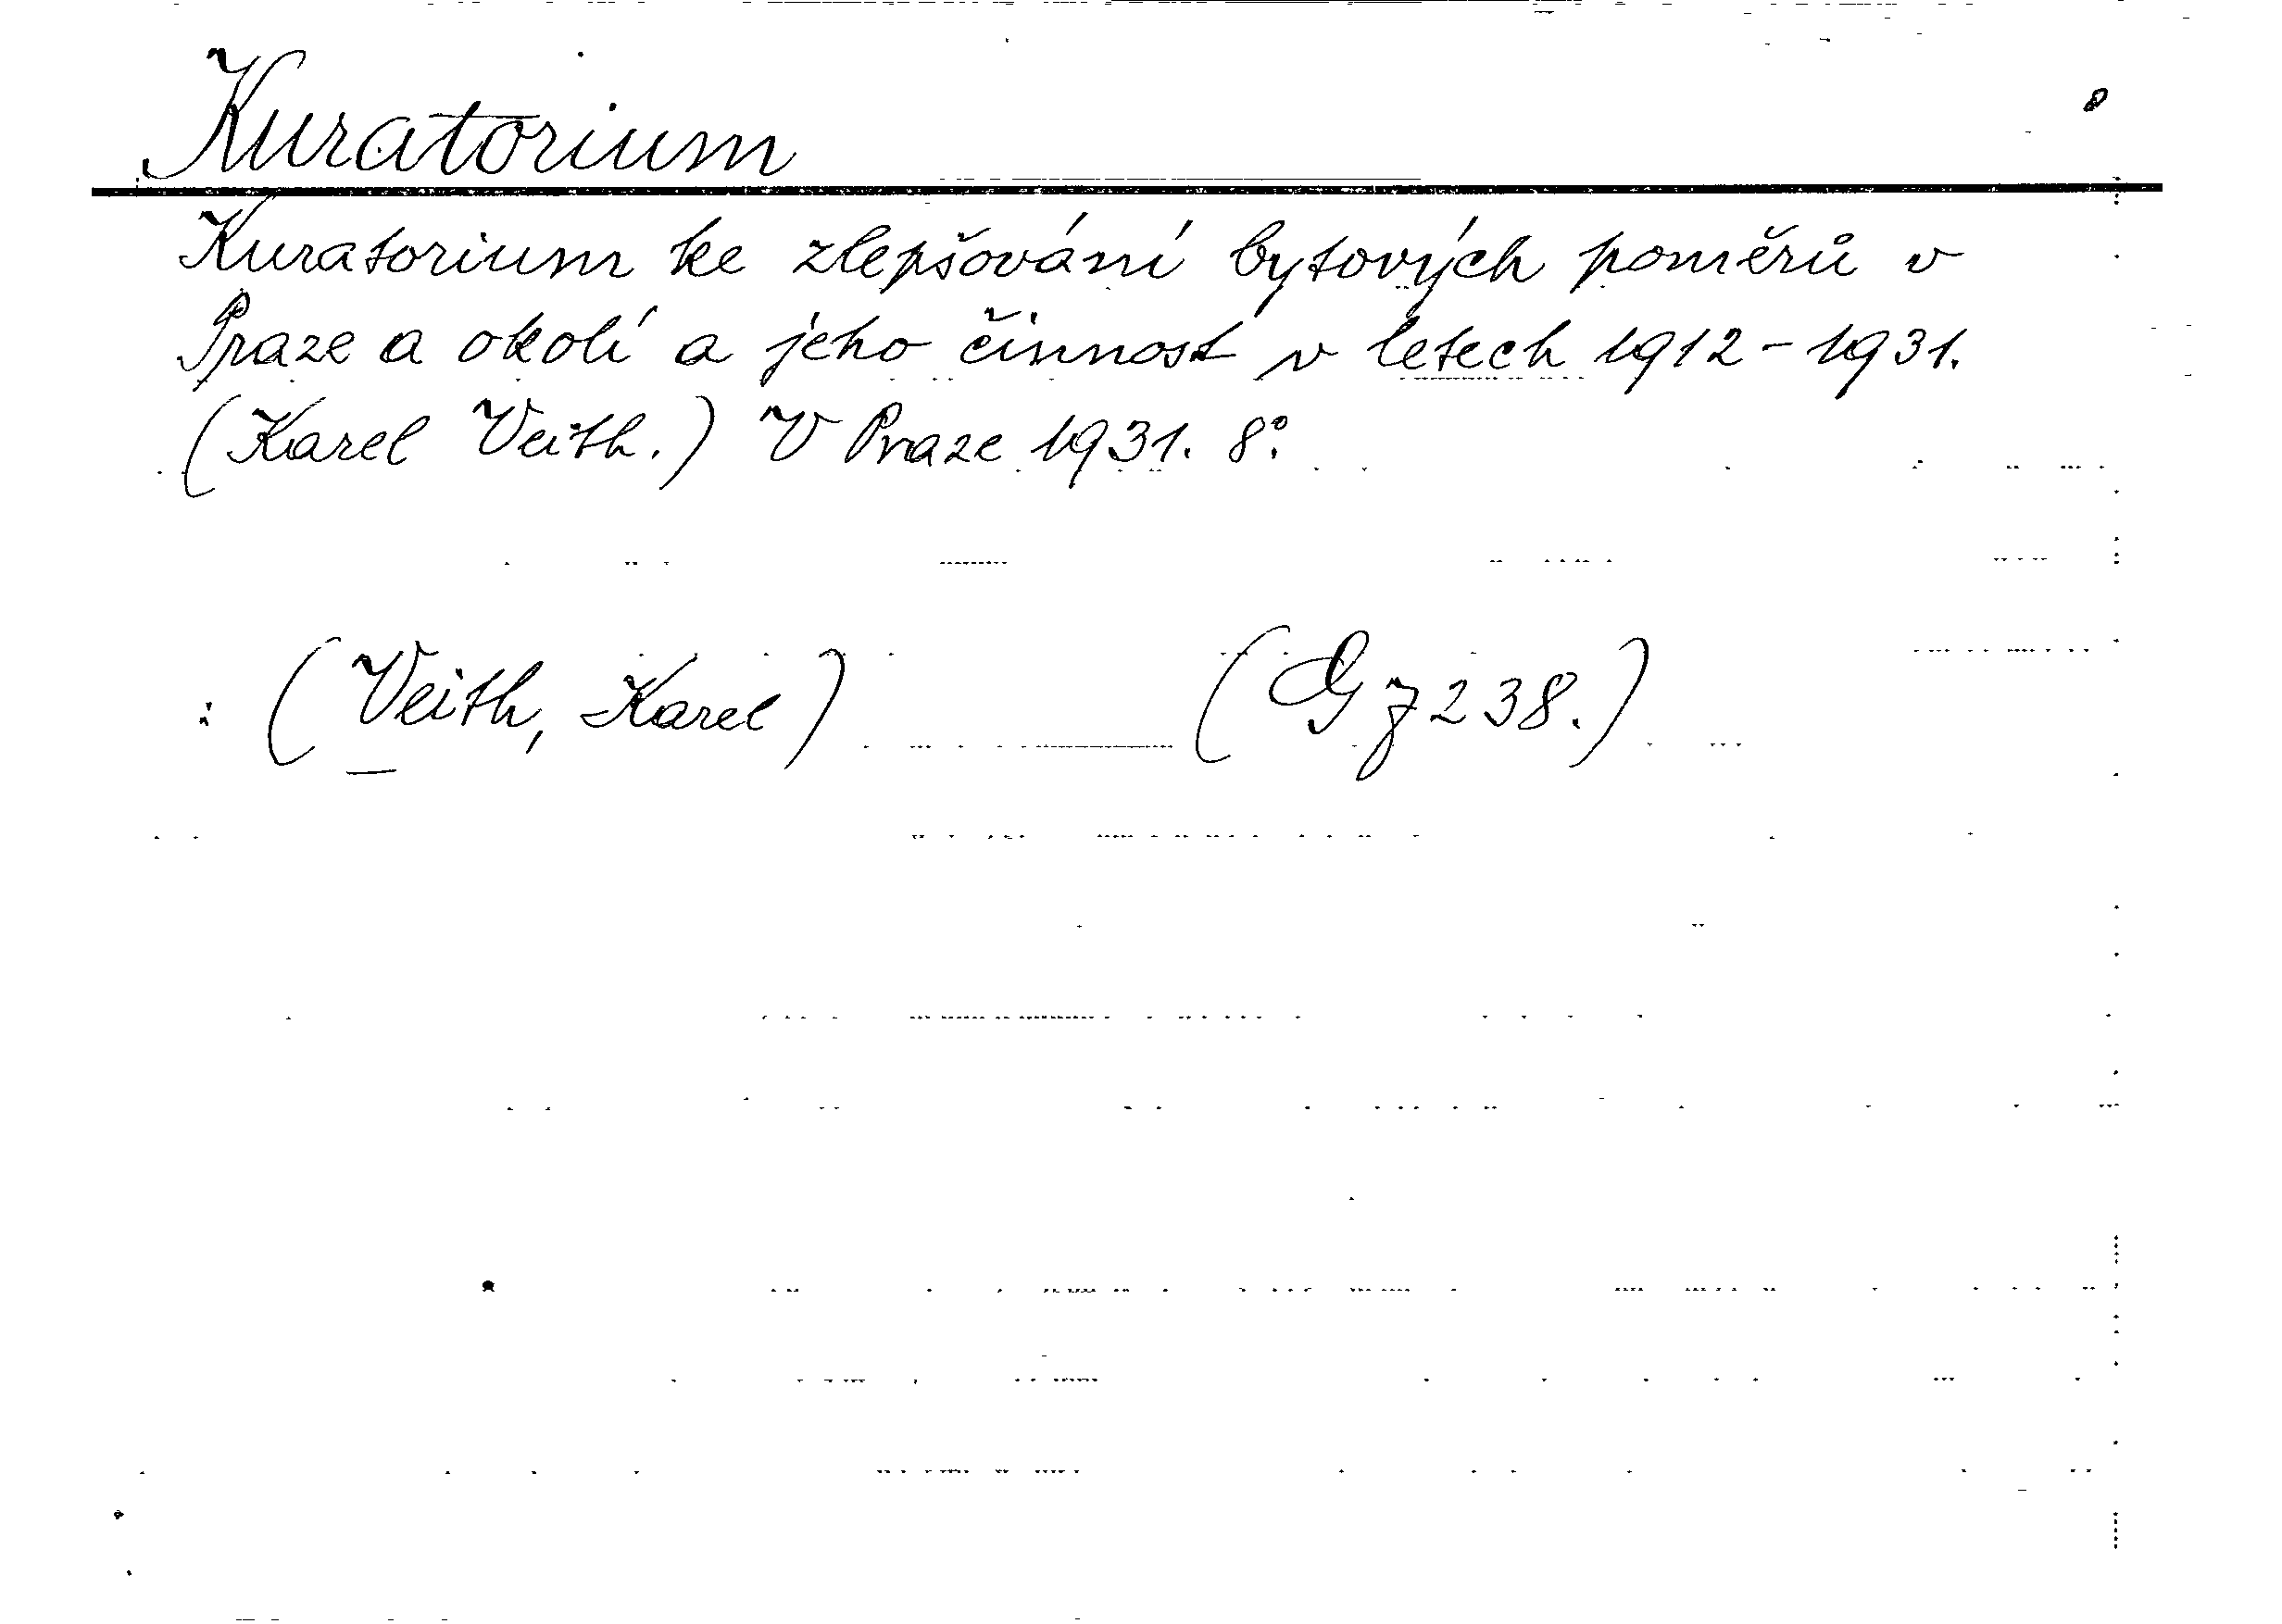 Kuratorium
Kuratorium ke zlepšování bytových poměrů v
Praze a okolí a jeho činnost v letech 1912-1931.
(Karel Veith.) V Praze 1931. 8°.
(Veith, Karel) (G z 238.)